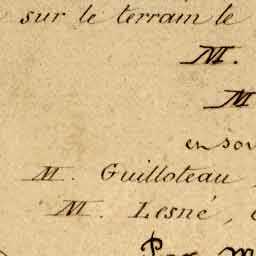 sur le terrain le
M.
M
en
M. Guilloteau,
M. Lesné,
Par